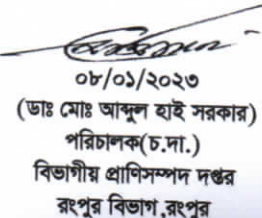 ০৮/০১/২০২৩
(ডাঃ মোঃ আব্দুল হাই সরকার)
পরিচালক(চ.দা.)
বিভাগীয় প্রাণিসম্পদ দপ্তর
রংপুর বিভাগ,রংপুর